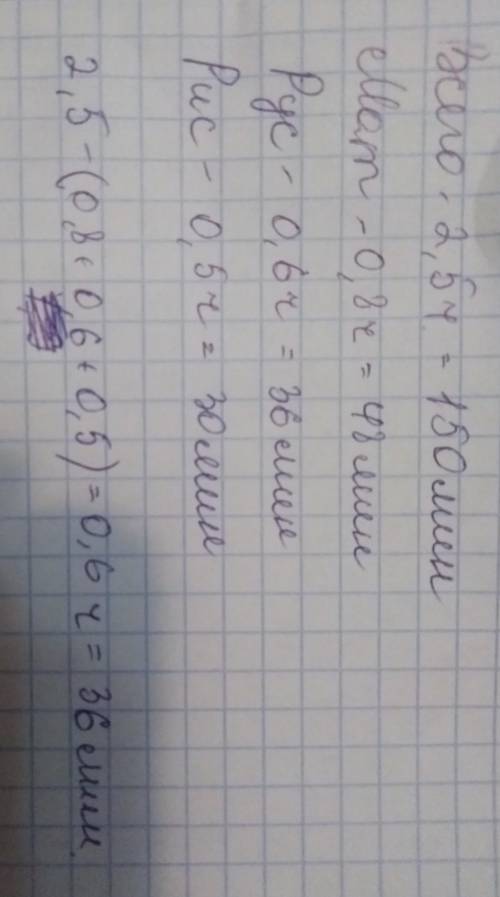 Всего - 2,5ч = 150мин
Мат - 0,8ч = 48мин
Рус - 0,6ч = 36мин
Рис - 0,5ч = 30мин
2,5 - (0,8 + 0,6 + 0,5) = 0,6ч = 36мин.